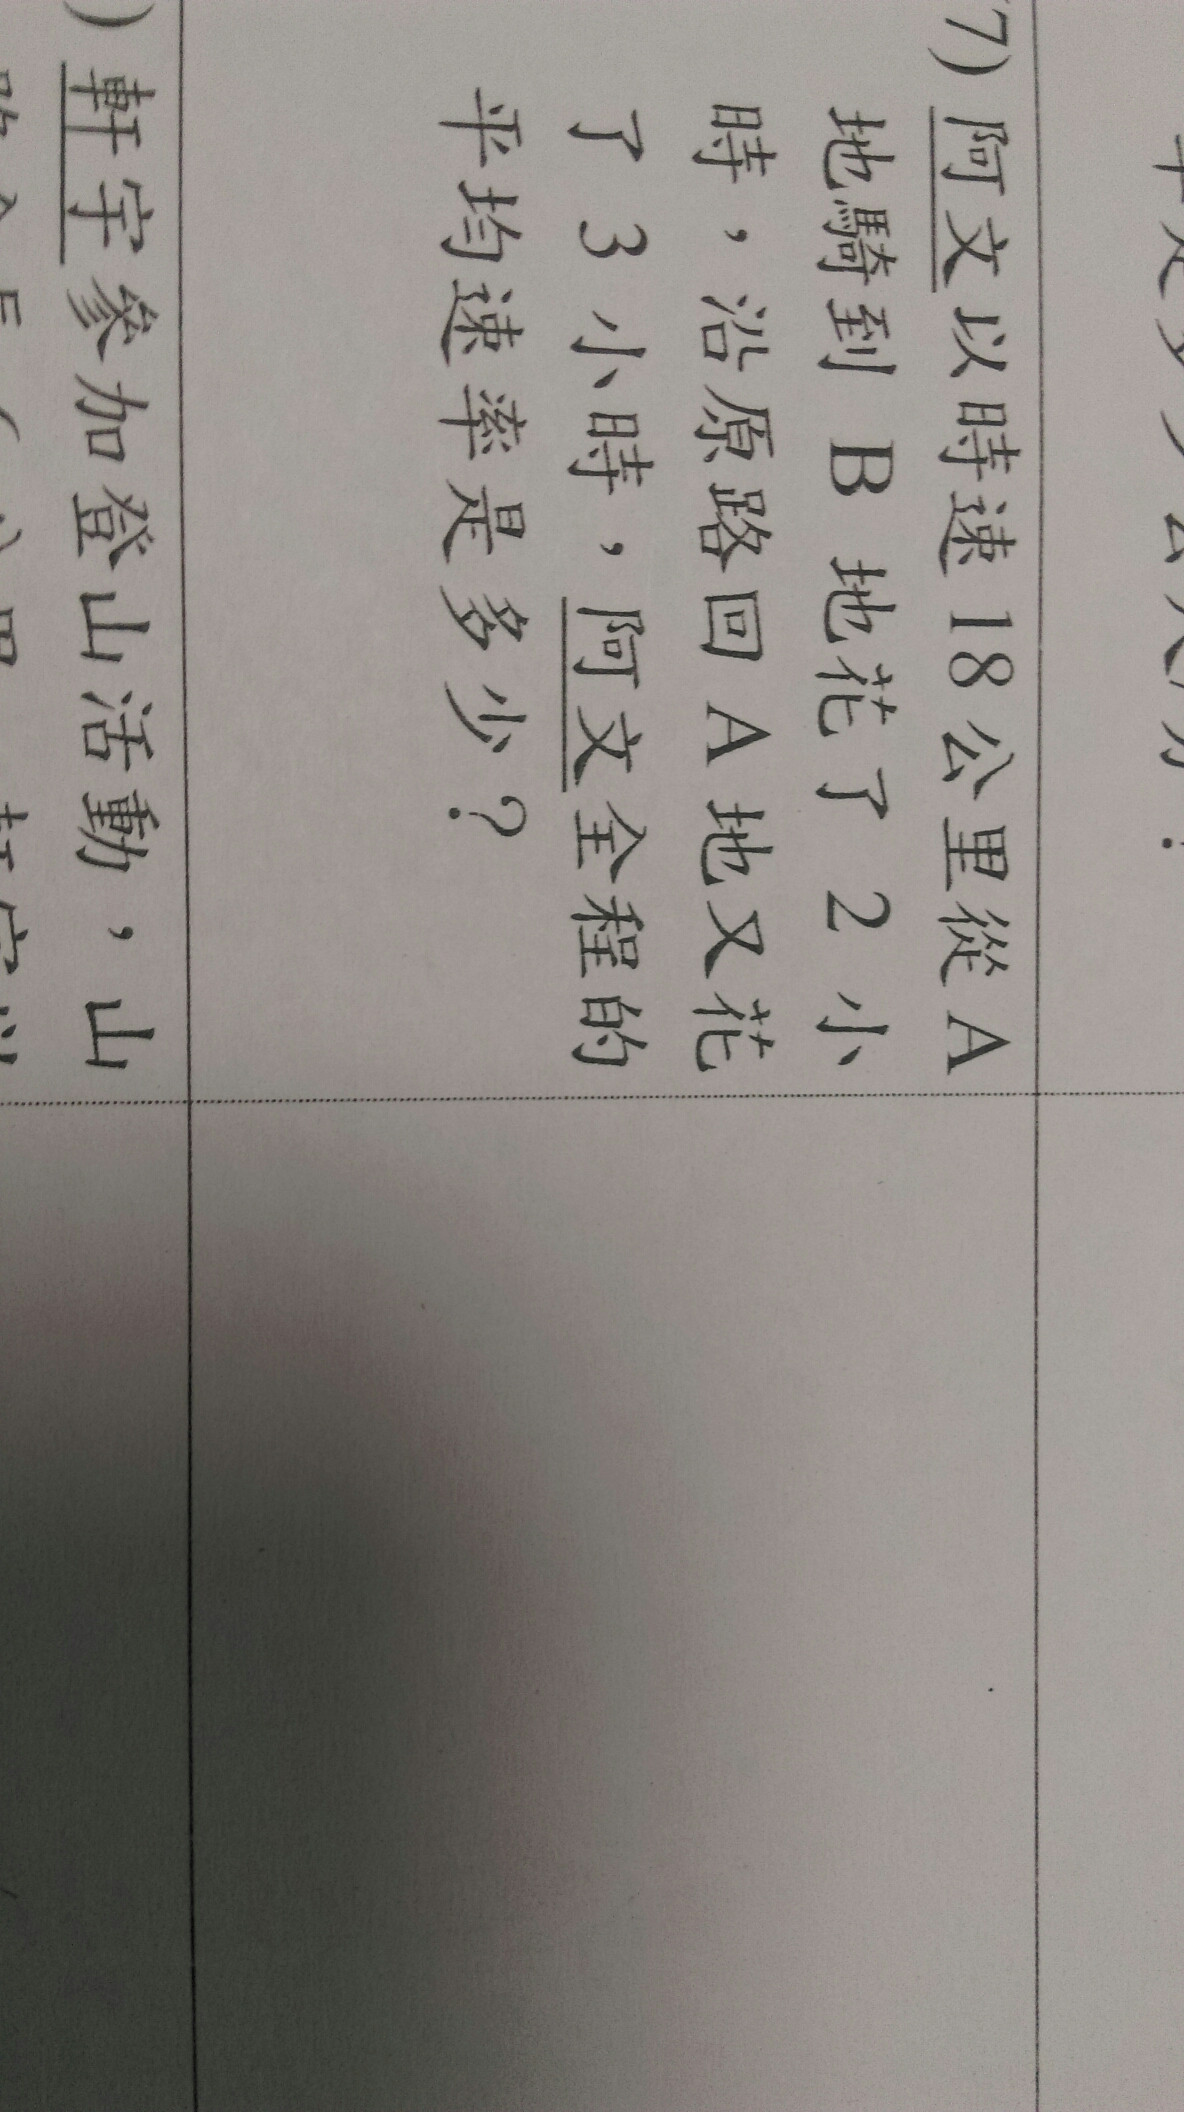 7) 阿文以時速 18 公里從 A
地騎到 B 地花了 2 小
時，沿原路回 A 地又花
了 3 小時，阿文全程的
平均速率是多少？
) 軒宇參加登山活動，山